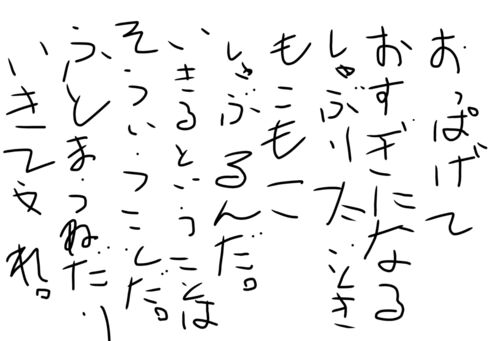 おっぱげて
おすぎになる
しゃぶりたいとき
もこもこ
しゃぶるんだ。
いきるということは
そういうことだ。
ふとまつねだり
いきて